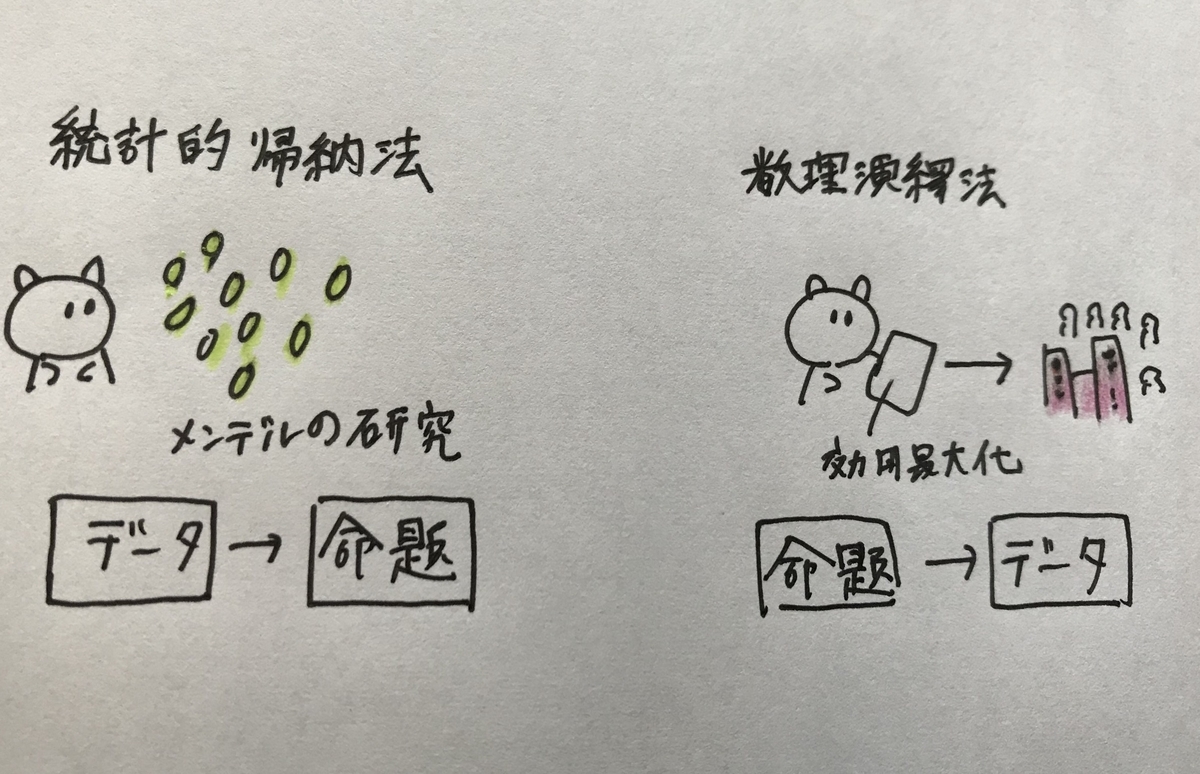 統計的帰納法
メンデルの研究
データ → 命題
数理演繹法
効用最大化
命題 → データ